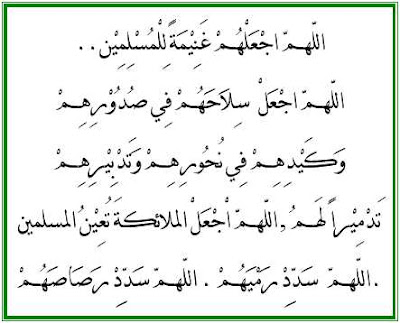 اللّهمّ اجْعَلْهُمْ غَنِيْمَةً لِلْمُسْلِمِيْن ..
اللّهمّ اجْعَلْ سِلَاحَهُمْ فِي صُدُوْرِهِمْ
وَكَيْدِهِمْ فِي نُحُورِهِمْ وَتَدْبِيْرِهِمْ
تَدْمِيْراً لَهمُ , اللّهمّ اْجْعَلْ الملائكةَ تُعِيْنُ المسلمين
. اللّهمّ سَدِّدْ رَمْيَهُمْ . اللّهمّ سَدِّدْ رَصَاصَهُمْ